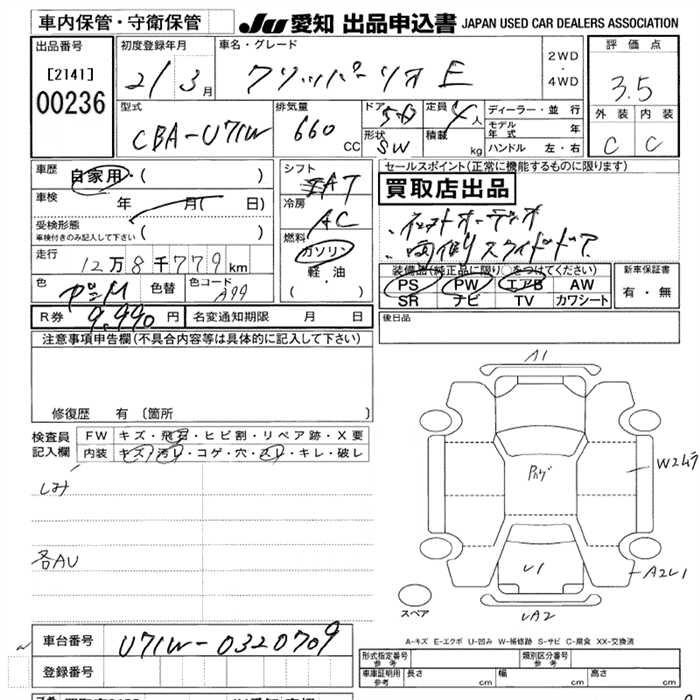 車内保管・守衛保管
JU 愛知 出品申込書 JAPAN USED CAR DEALERS ASSOCIATION
出品番号
[2141]
00236
初度登録年月
21/3月
車名・グレード
クリッパーリオ E
2WD
・
4WD
評価点
3.5
外装 内装
C C
型式
CBA-U71W
排気量
660 CC
ドア
5D
形状
SW
定員
4人
積載
kg
ディーラー・並行
モデル年式 年
ハンドル 左・右
車歴
自家用・( )
車検 年 月( 日)
受検形態
車検付きのみ記入して下さい ( )
走行
12万8千779km
色
色替
色コード
A99
R券 9,990円
名変通知期限 月 日
シフト
AT
冷房
AC
燃料
ガソリン
軽・油
( ・ )
セールスポイント(正常に機能するものに限ります)
買取店出品
・ネットオーディオ
・両側スライドドア
装備品(純正品に限り○をつけてください)
PS PW エアB AW
SR ナビ TV カワシート
新車保証書
有・無
後日品
注意事項申告欄(不具合内容等は具体的に記入して下さい)
修復歴 有〔箇所 〕
検査員記入欄
FW キズ・飛石・ヒビ割・リペア跡・X要
内装 キズ・汚レ・コゲ・穴・スレ・キレ・破レ
シミ
各AU
A1
W2ムラ
A2U1
U1
UA2
スペア
A-キズ E-エクボ U-凹み W-補修跡 S-サビ C-腐食 XX-交換済
車台番号 U71W-0320709
登録番号
形式指定番号 参考
類別区分番号 参考
車庫証明用 参考 長さ 幅 高さ